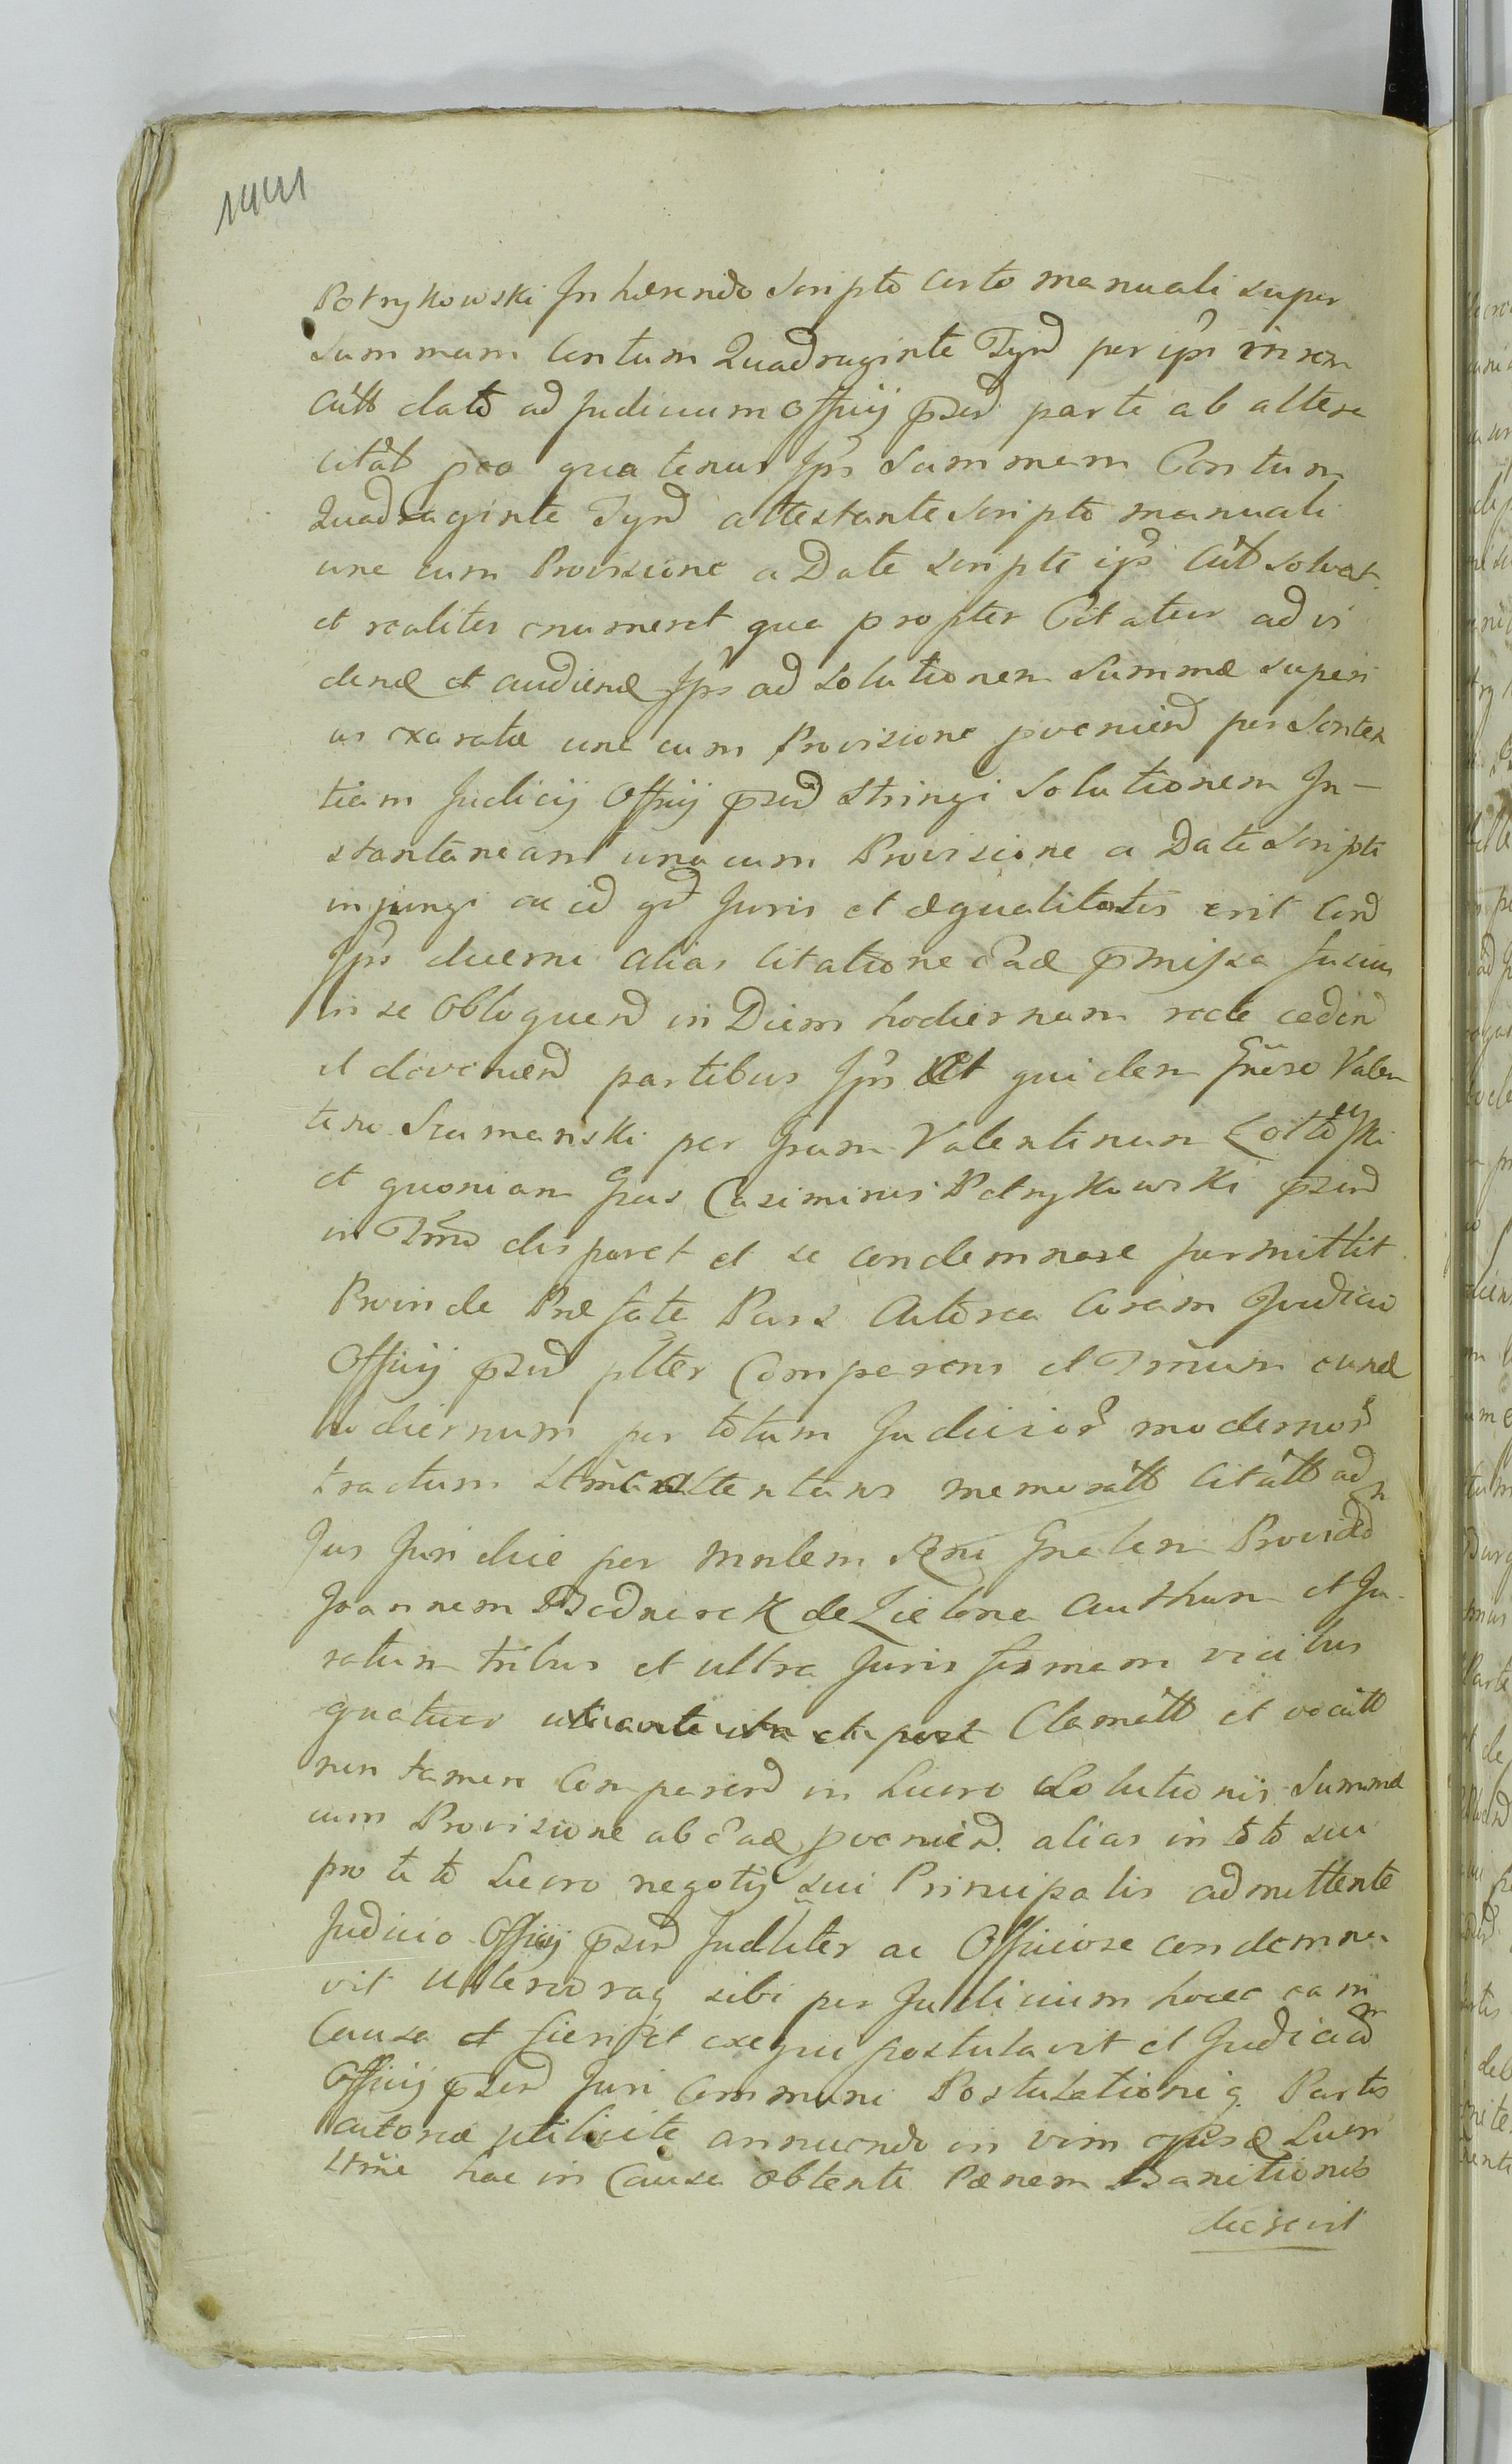 1441
Potrykowski Inhærendo Scripto certo manuali super
Summam Centum Quadraginta Tynd per ips in rem
Citt dato ad Judicium Officij præsend parte ab altera
citat pro quatenus Ips Summam Centum
Quadraginta Tynd attestante Scripto manuali
una cum Provisione a Data Scripti ips Citt solvat
et realiter enumeret qua propter Citatur ad vi
dend et audiend Ips ad Solutionem Summæ superi
us exaratæ una cum Provisione pvenien per Senten
tiam Judicij Officij præsend Stringi Solutionem In-
stantaneam una cum Provisione a Data Scripti
injungi ac id qd Juris et æqualitatis erit Cend
Ips decerni alias Citatione ead pmissa
in se Obloquend in Diem hodiernam recte cadend
et devenend partibus Ips Et quidem Gnoso Valen
tino Szumanski per Gnum Valentinum
et quoniam Gnus Casimirus Potrykowski præsend
in Tmo disparet et se condemnare permittit
Proinde Præfata Pars Actorea Coram Judicio
Officij præsend plter Comparens et Tminum eund
hodiernum per totum Judicior modernor
tractum attentans memoratt citatt ad
Jus Juridice per mnlem Rni Gnalem Provid
Joannem Bednarek de Zielona authum et Ju-
ratum tribus et ultra Juris formam vicibus
quatuor uti ante ita et post Clamatt et vocatt
non tamen Comparend in Lucro Solutionis Summæ
cum Provisione ab ead pvenien alias in toto suo
pro toto Lucro negotij sui Principalis admittente
Judicio Officij præsend Judlliter ac Officiose condemna
vit Ulterioraq sibi per Judicium hocce ea in
Causa et fieri et exequi postulavit et Judicium
Officij præsend Juri Communi Postulationiq Partis
actoreæ utilicite annuendo in vim Lucri
hac in Causa obtenti Pœnam Banitionis
decrevit